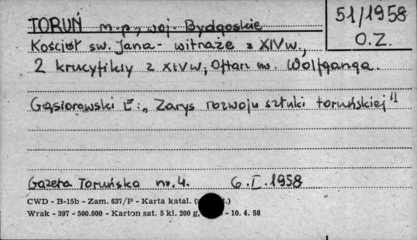 TORUŃ m.p., woj. Bydgoskie
51/1958
O.Z.
Kościół św. Jana - witraże z XIV w.,
2 krucyfiksy z XIV w., Ołtarz św. Wolfganga.
Gąsiorowski E: „Zarys rozwoju sztuki toruńskiej"
Gazeta Toruńska nr. 4. 6.I.1958
CWD - B-15b - Zam. 637/P - Karta katal.
Wrak - 397 - 500.000 - Karton sat. 5 kl. 200 g, - 10. 4. 58